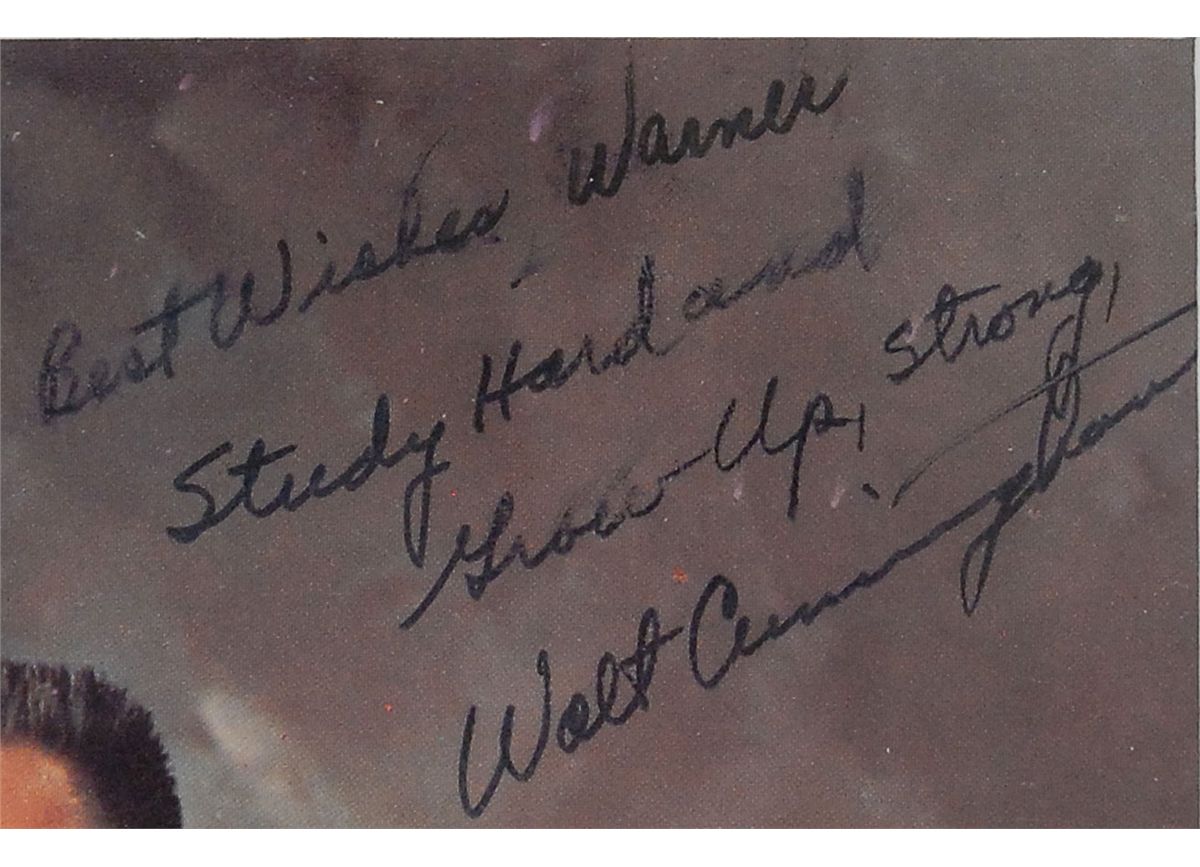 Best Wishes Warner
Study Hard and
Grow Up, Strong,
Walt Cunningham